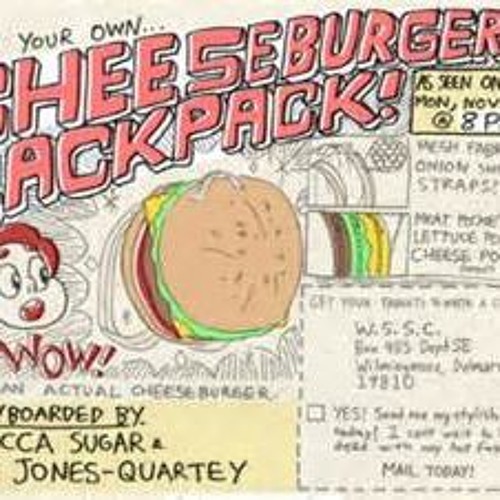 YOUR OWN...
CHEESEBURGER
BACKPACK!
AS SEEN ON
MON, NOV
@ 8 P
MESH FABR
ONION SH
STRAPS!
MEAT POCKE
LETTUCE PO
CHEESE PO
WOW!
AN ACTUAL CHEESEBURGER.
YBOARDED BY
CCA SUGAR &
JONES-QUARTEY
GET YOUR
W.S.S.C.
Box 985 Dept SE
19810
YES! Send me my stylish
today! I cant wait to
MAIL TODAY!